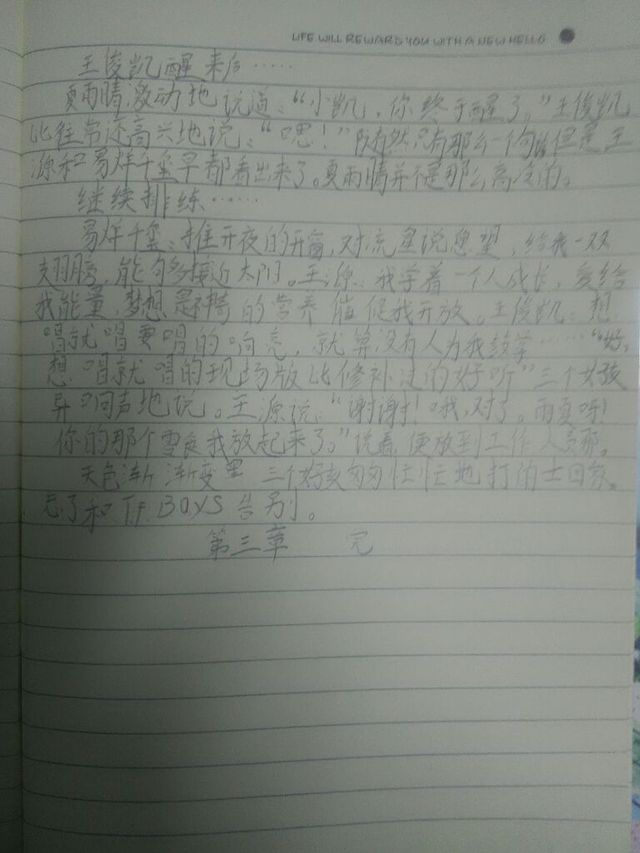 LIFE WILL REWARD YOU WITH A NEW HELLO
王俊凯醒来后……
夏雨晴激动地说道:“小凯,你终于醒了。”王俊凯
比往常还高兴地说:“嗯!”虽然只有那么一句但是王
源和易烊千玺早都看出来了。夏雨晴并不是那么高冷的。
继续排练……
易烊千玺:推开夜的天窗,对流星说愿望,给我一双
翅膀,能够接近太阳。王源:我学着一个人成长,爱给
我能量,梦想是神奇的营养催促我开放。王俊凯:想
唱就唱要唱的响亮,就算没有人为我鼓掌……“好
想唱就唱的现场版比修补过的好听”三个女孩
异口同声地说。王源说:“谢谢!哦,对了。雨夏呀!
你的那个我放起来了。”说着便放到工作人员那。
天色渐渐变黑 三个女孩匆匆忙忙地打的士回家。
忘了和T.F.BOYS告别。
第三章 完